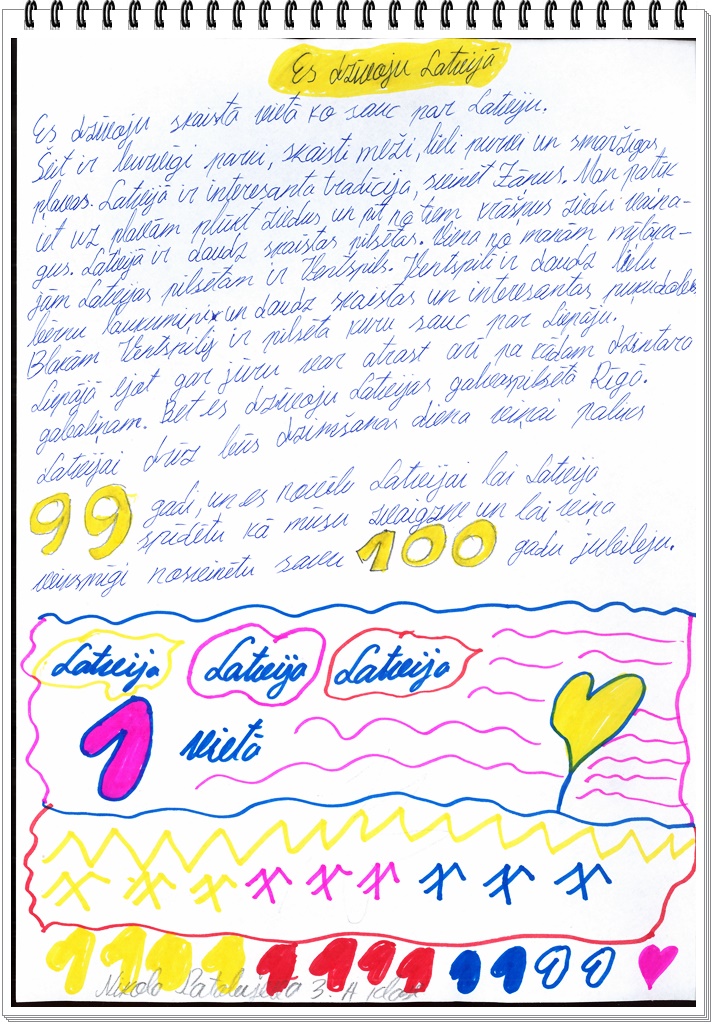 Es dzīvoju Latvijā
Es dzīvoju skaistā vietā ko sauc par Latviju.
Šeit ir lieliski parki, skaisti meži, lieli purvi un smaržīgas
pļavas. Latvijā ir interesanta tradīcija, svinēt Jāņus. Man patīk
iet uz pļavām plūkt ziedus un pīt no tiem krāšņus ziedu vaina-
gus. Latvijā ir daudz skaistas pilsētas. Viena no manām mīļāka-
jām Latvijas pilsētām ir Ventspils. Ventspilī ir daudz lielu
bērnu laukumiņi un daudz skaistas un interesantas puķudobes
Blakām Ventspilij ir pilsēta kuru sauc par Liepāju.
Liepājā ejot gar jūru var atrast arī pa kādam dzintara
gabaliņam. Bet es dzīvoju Latvijas galvaspilsētā Rīgā.
Latvijai drīz būs dzimšanas diena viņai paliks
99 gadi, un es novēlu Latvijai lai Latvija
spīdētu kā mūsu zvaigzne un lai viņa
veiksmīgi nosvinētu savu 100 gadu jubileju.
Latvija Latvija Latvija
1 vietā
1 1 1 1 1 1 1 1 1 1
3. A klase